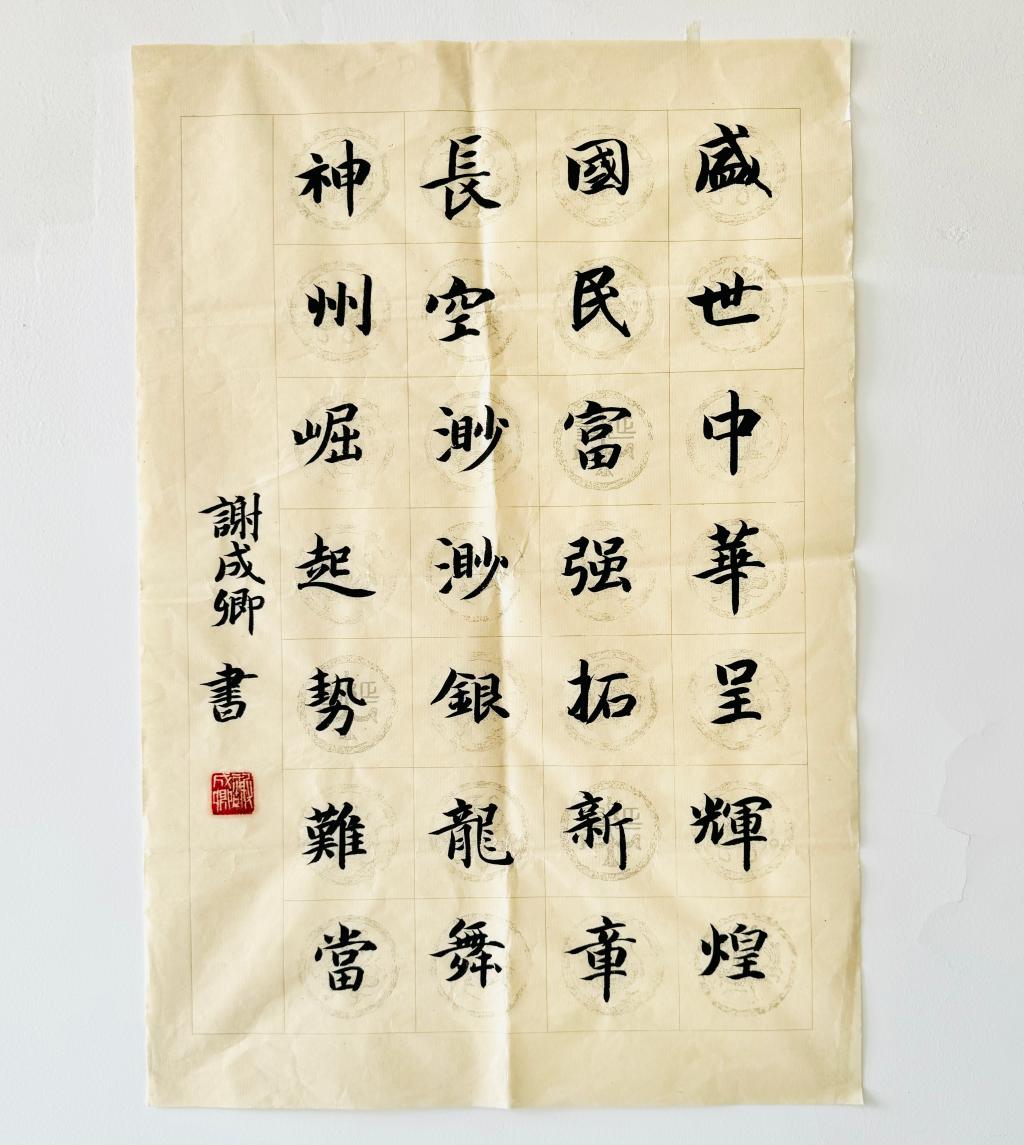 盛世中華呈輝煌
國民富强拓新章
長空渺渺銀龍舞
神州崛起勢難當
謝成卿 書